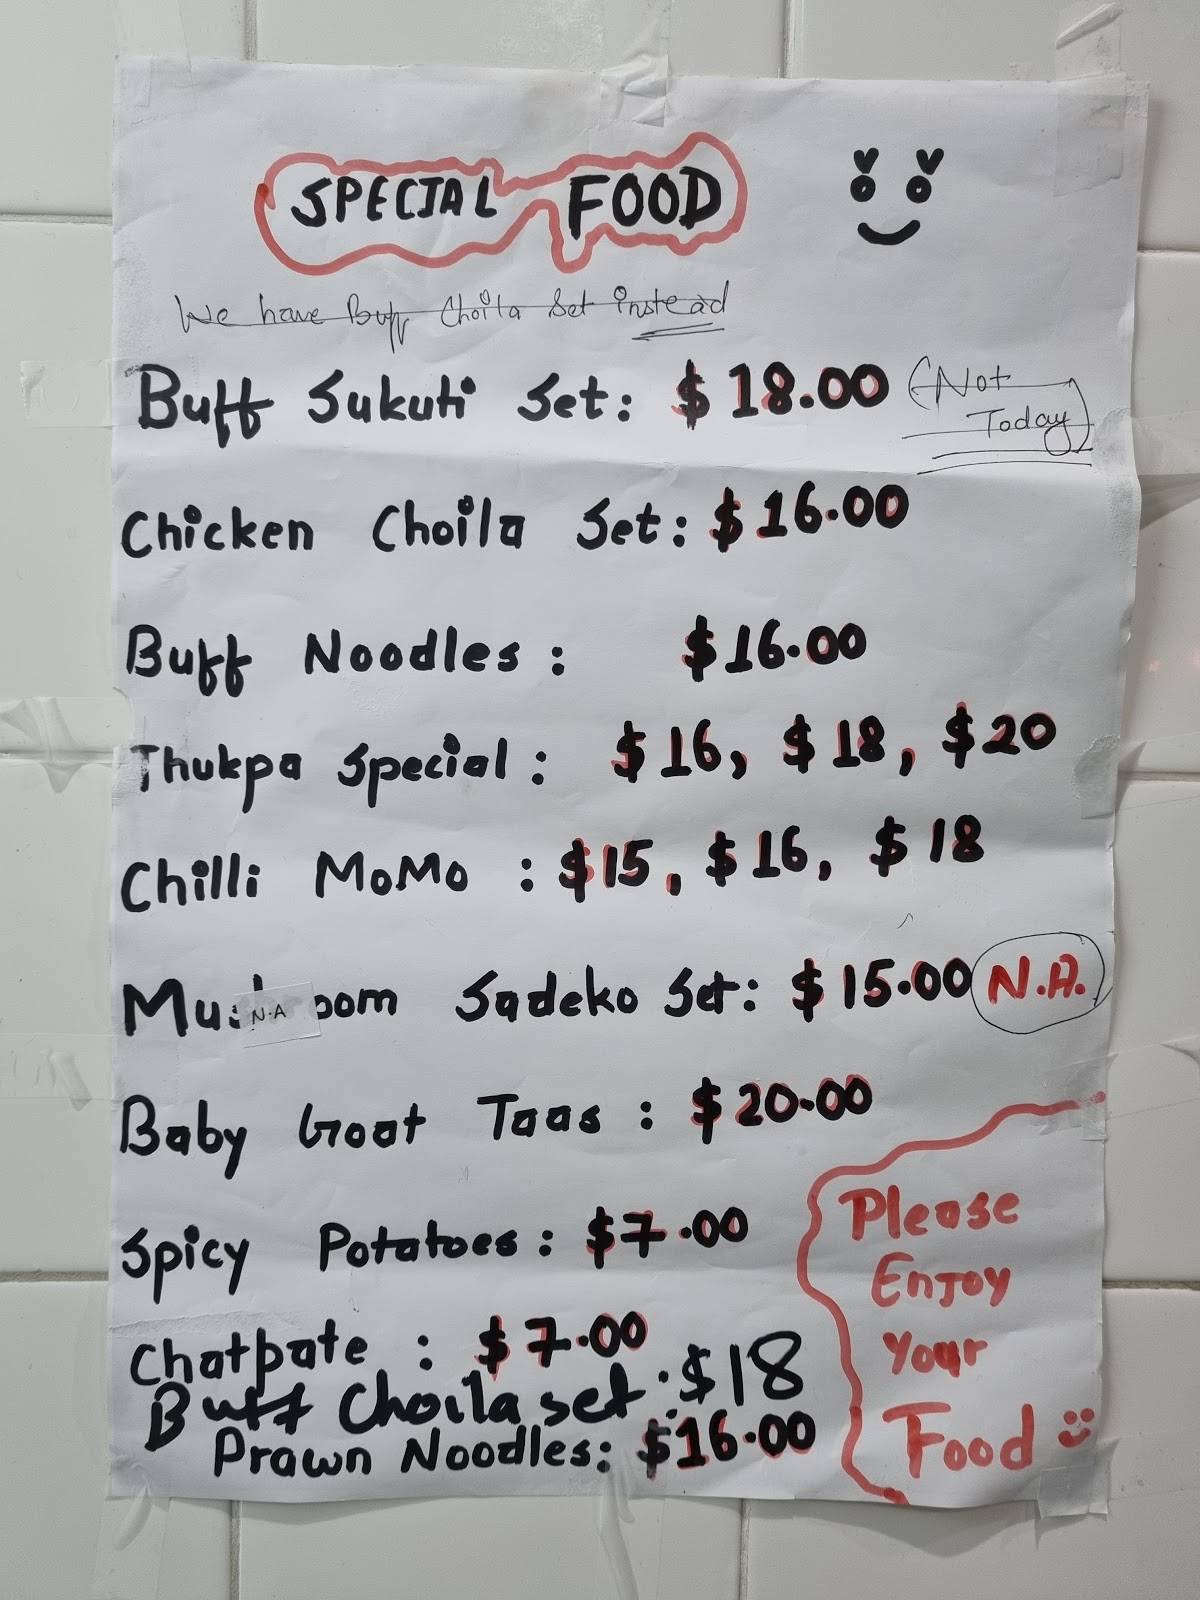 SPECIAL FOOD
We have Buff Choila Set instead
Buff Sukuti Set: $18.00 (Not Today)
Chicken Choila Set: $16.00
Buff Noodles: $16.00
Thukpa Special: $16, $18, $20
Chilli MoMo: $15, $16, $18
Mushroom Sadeko Set: $15.00 N.A.
N.A
Baby Goat Taas: $20.00
Spicy Potatoes: $7.00
Chatpate: $7.00
Buff Choila set: $18
Prawn Noodles: $16.00
Please
Enjoy
Your
Food